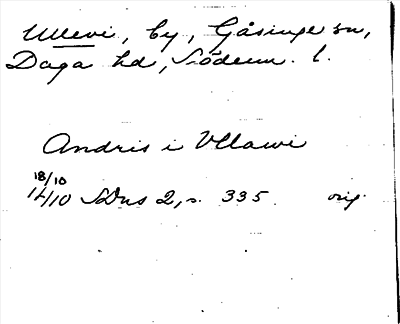 Ullevi, by, Gåsinge sn,
Daga hd, Söderm. l.
Andris i Vllawi
18/10
1410 SDns 2, s. 335. orig.